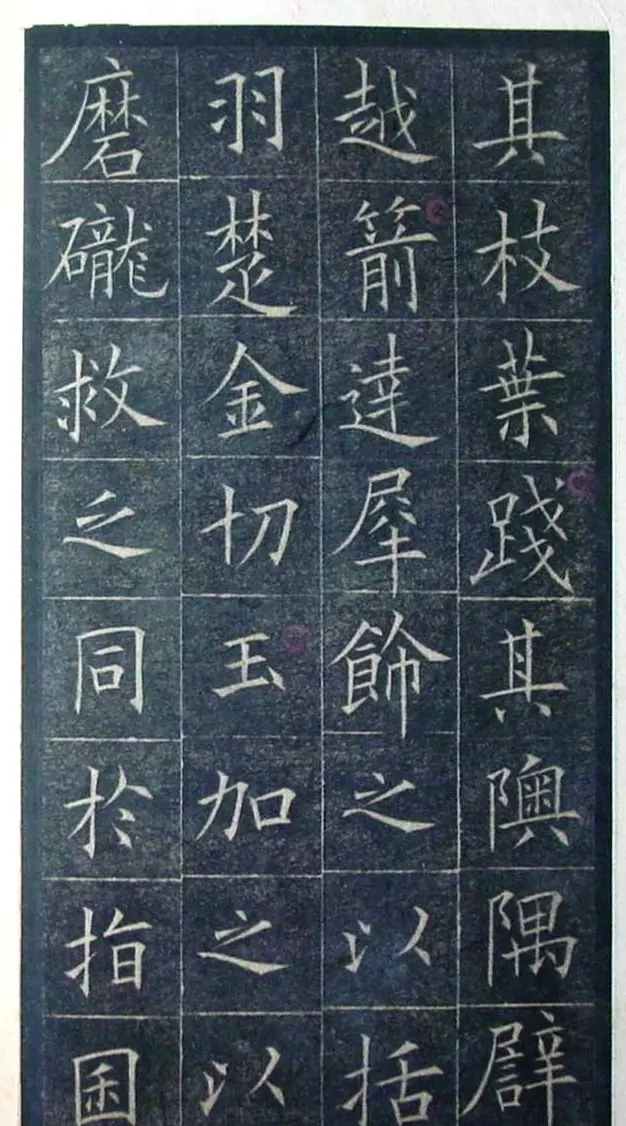 其枝葉踐其隩隅譬
越箭達犀飾之以括
羽楚金切玉加之以
磨礲救乏同於指囷